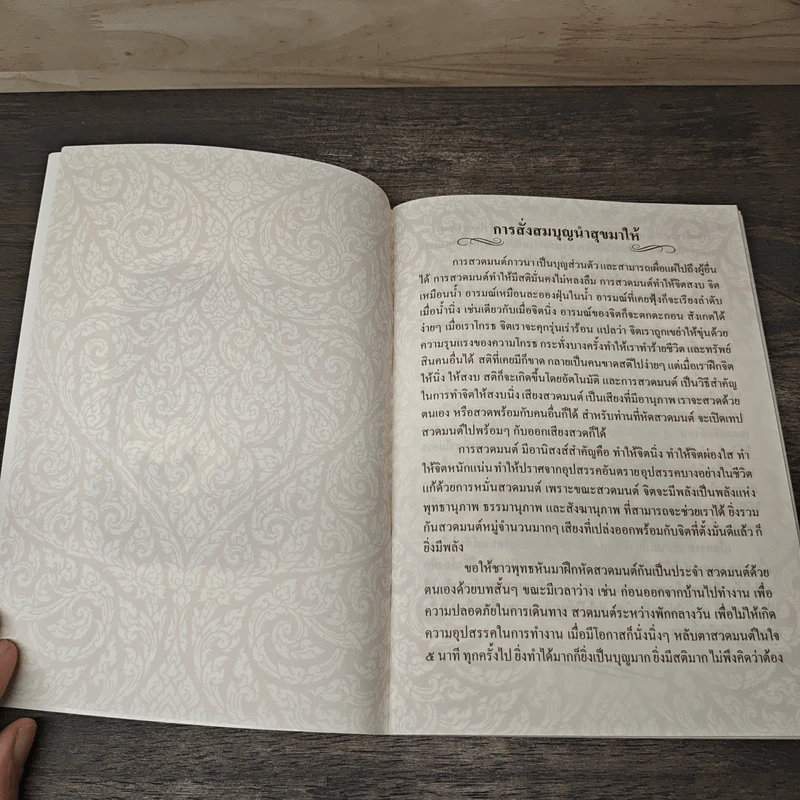 การสั่งสมบุญนำสุขมาให้
การสวดมนต์ภาวนา เป็นบุญส่วนตัว และสามารถเผื่อแผ่ไปถึงผู้อื่น
ได้ การสวดมนต์ทำให้มีสติมั่นคงไม่หลงลืม การสวดมนต์ทำให้จิตสงบ จิต
เหมือนน้ำ อารมณ์เหมือนละอองฝุ่นในน้ำ อารมณ์ที่เคยฟุ้งก็จะเรียงลำดับ
เมื่อน้ำนิ่ง เช่นเดียวกับเมื่อจิตนิ่ง อารมณ์ของจิตก็จะตกตะกอน สังเกตได้
ง่ายๆ เมื่อเราโกรธ จิตเราจะคุกรุ่นเร่าร้อน แปลว่า จิตเราถูกเขย่าให้ขุ่นด้วย
ความรุนแรงของความโกรธ กระทั่งบางครั้งทำให้เราทำร้ายชีวิต และทรัพย์
สินคนอื่นได้ สติที่เคยมีก็ขาด กลายเป็นคนขาดสติไปง่ายๆ แต่เมื่อเราฝึกจิต
ให้นิ่ง ให้สงบ สติก็จะเกิดขึ้นโดยอัตโนมัติ และการสวดมนต์ เป็นวิธีสำคัญ
ในการทำจิตให้สงบนิ่ง เสียงสวดมนต์ เป็นเสียงที่มีอานุภาพ เราจะสวดด้วย
ตนเอง หรือสวดพร้อมกับคนอื่นก็ได้ สำหรับท่านที่หัดสวดมนต์ จะเปิดเทป
สวดมนต์ไปพร้อมๆ กับออกเสียงสวดก็ได้
การสวดมนต์ มีอานิสงส์สำคัญคือ ทำให้จิตนิ่ง ทำให้จิตผ่องใส ทำ
ให้จิตหนักแน่น ทำให้ปราศจากอุปสรรคอันตราย อุปสรรคบางอย่างในชีวิต
แก้ด้วยการหมั่นสวดมนต์ เพราะขณะสวดมนต์ จิตจะมีพลังเป็นพลังแห่ง
พุทธานุภาพ ธรรมานุภาพ และสังฆานุภาพ ที่สามารถจะช่วยเราได้ ยิ่งรวม
กันสวดมนต์หมู่จำนวนมากๆ เสียงที่เปล่งออกพร้อมกับจิตที่ตั้งมั่นดีแล้ว ก็
ยิ่งมีพลัง
ขอให้ชาวพุทธหันมาฝึกหัดสวดมนต์กันเป็นประจำ สวดมนต์ด้วย
ตนเองด้วยบทสั้นๆ ขณะมีเวลาว่าง เช่น ก่อนออกจากบ้านไปทำงาน เพื่อ
ความปลอดภัยในการเดินทาง สวดมนต์ระหว่างพักกลางวัน เพื่อไม่ให้เกิด
ความอุปสรรคในการทำงาน เมื่อมีโอกาสก็นั่งนิ่งๆ หลับตาสวดมนต์ในใจ
๕ นาที ทุกครั้งไป ยิ่งทำได้มากก็ยิ่งเป็นบุญมาก ยิ่งมีสติมาก ไม่พึงคิดว่าต้อง